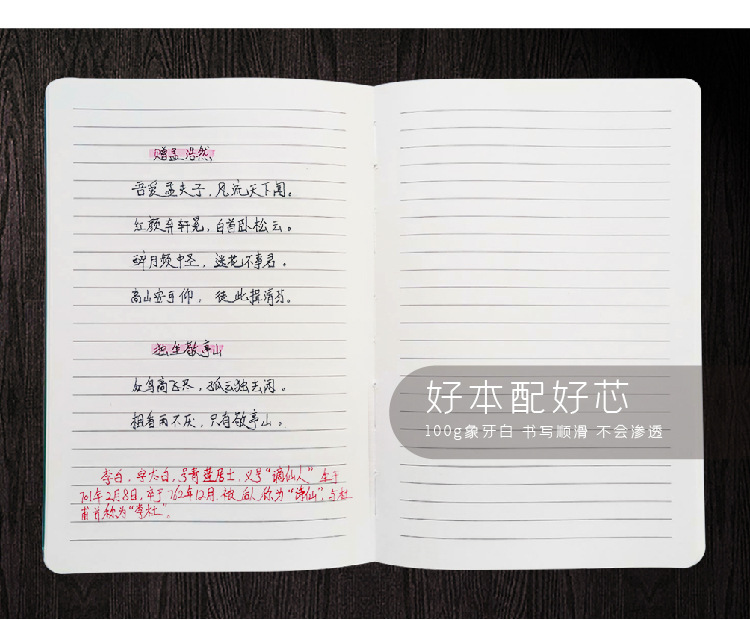 赠孟浩然
吾爱孟夫子，风流天下闻。
红颜弃轩冕，白首卧松云。
醉月频中圣，迷花不事君。
高山安可仰，徒此揖清芬。
独坐敬亭山
众鸟高飞尽，孤云独去闲。
相看两不厌，只有敬亭山。
李白，字太白，号青莲居士，又号“谪仙人”生于
701年2月8日，卒于762年12月，被后人称为“诗仙”，与杜
甫并称为“李杜”。
好本配好芯
100g象牙白 书写顺滑 不会渗透